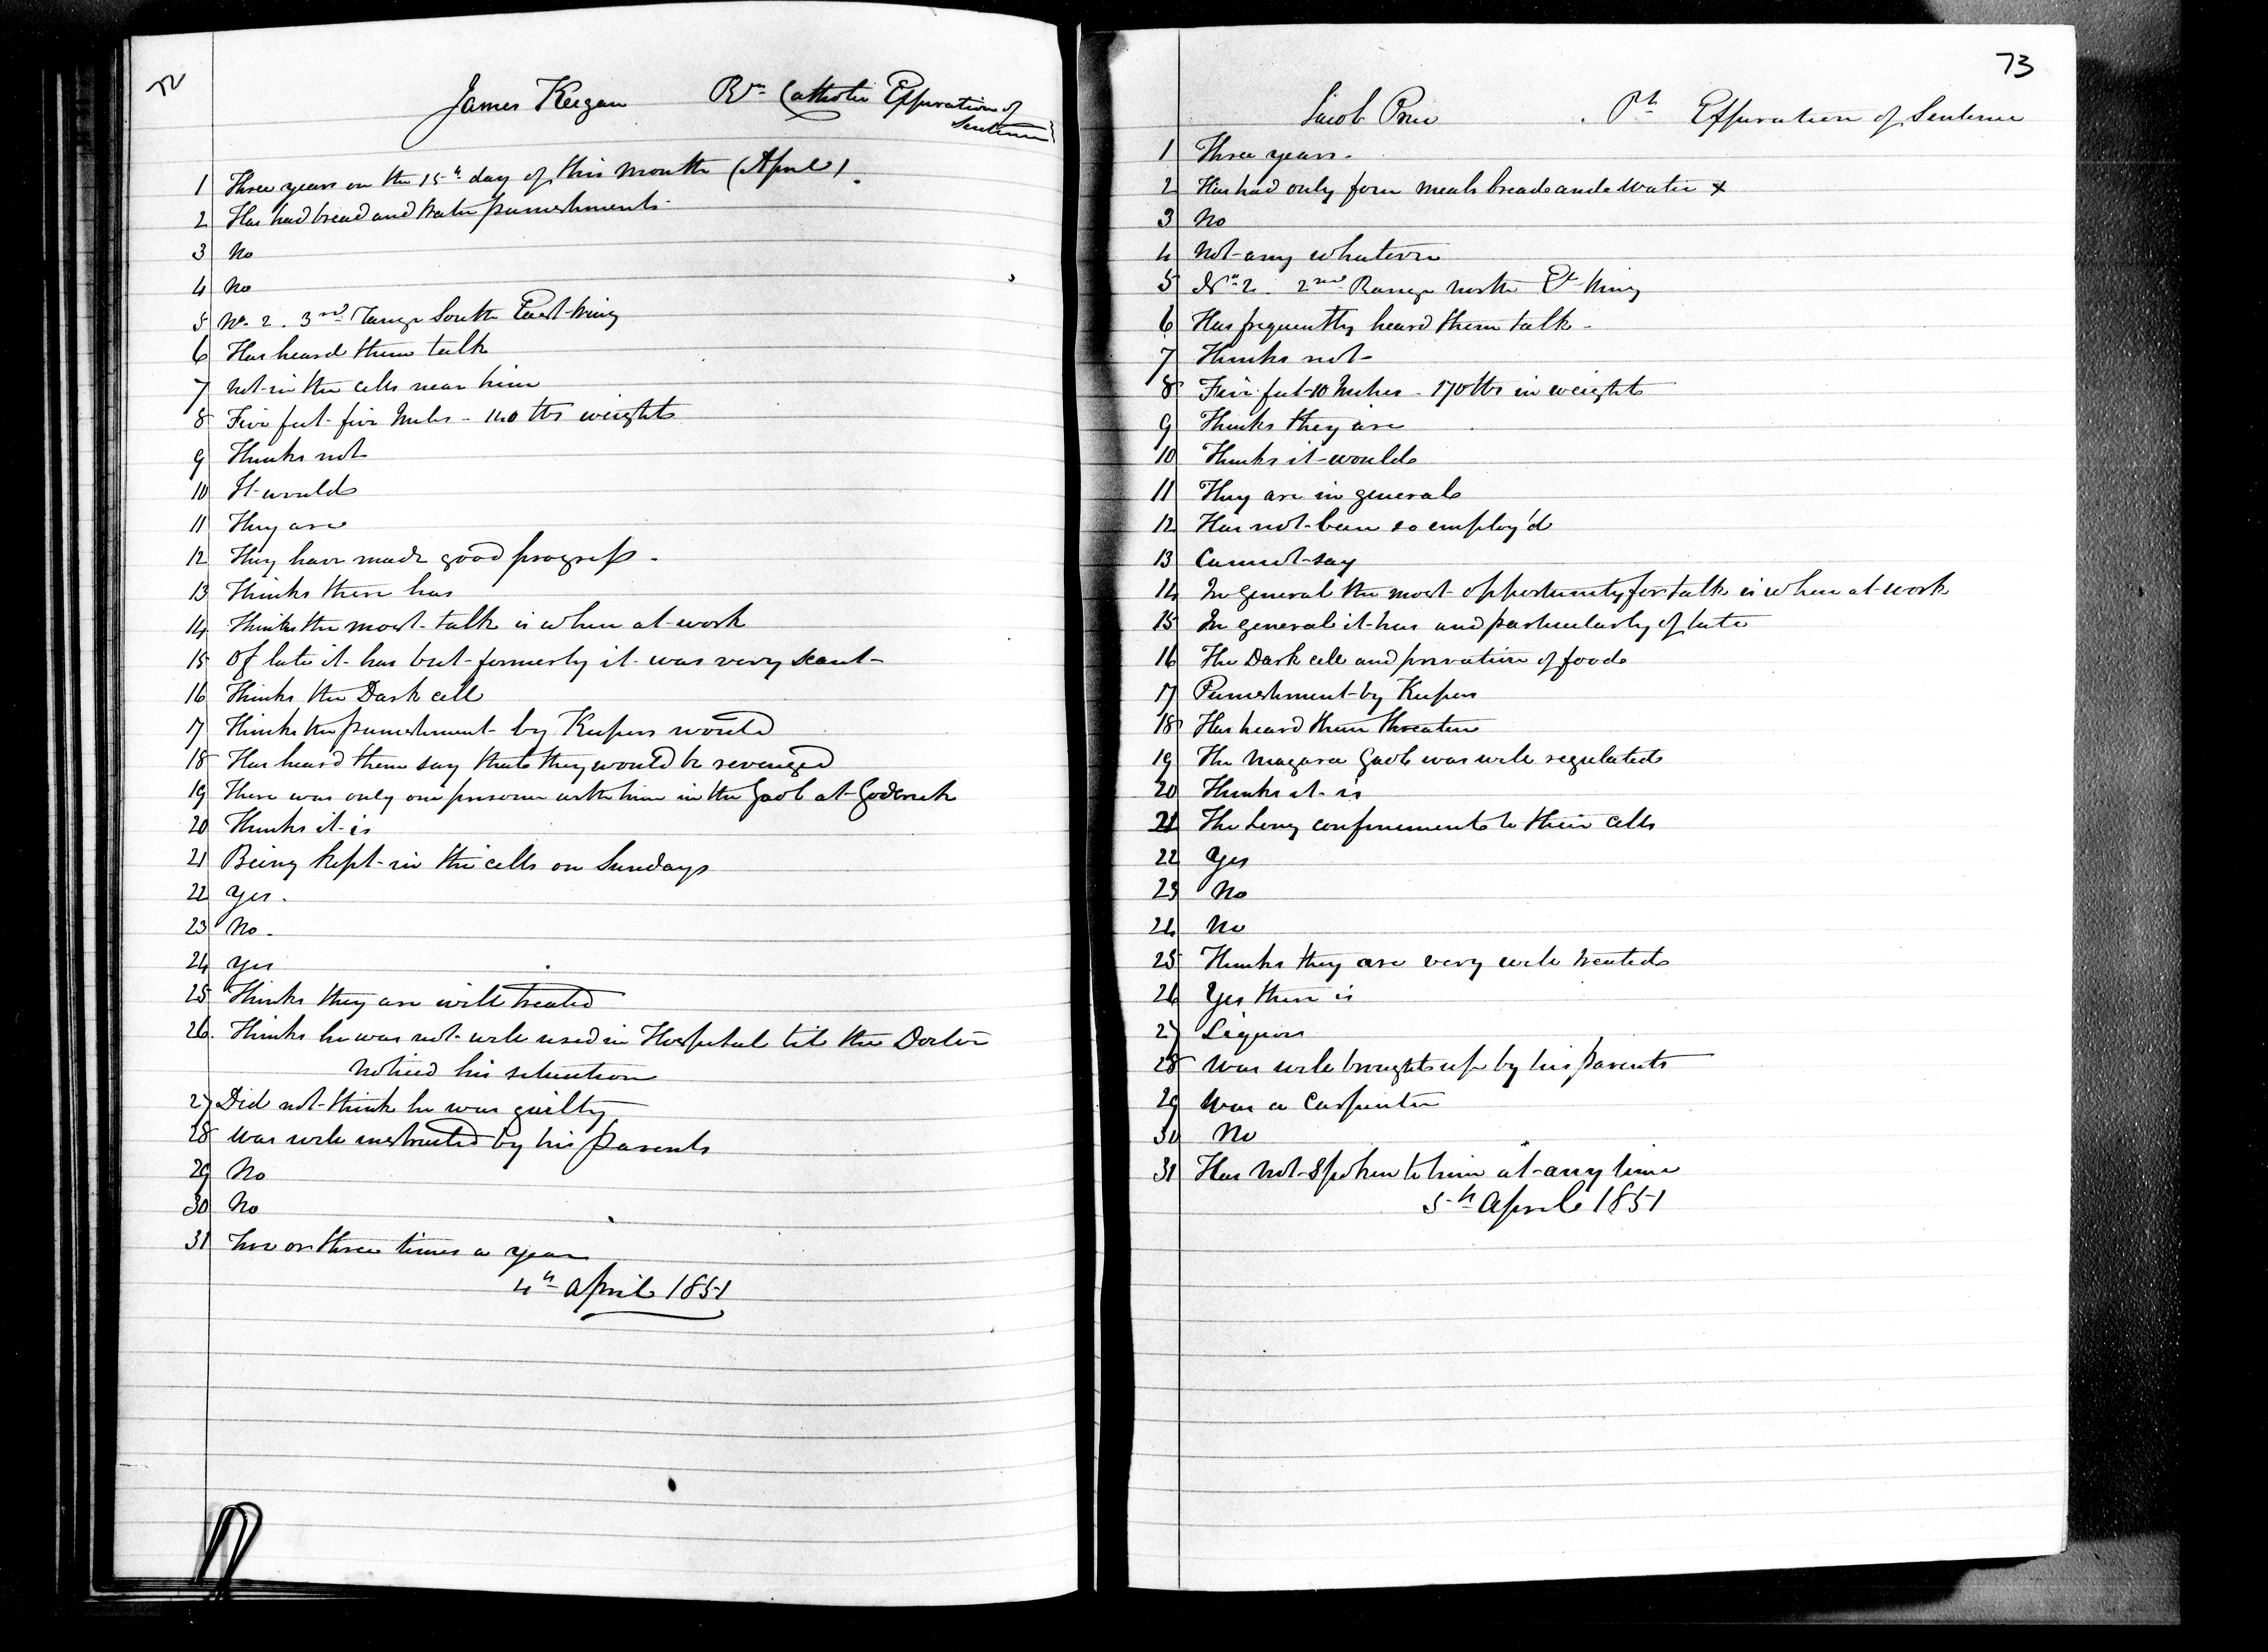 72
James Keegan Rn. Catholic Expiration of
Sentence
1 Three years on the 15th day of this month (April).
2 Has had bread and water punishments.
3 No
4 No
5 No. 2. 3rd Range South East Wing
6 Has heard them talk
7 Not in the cells near him
8 Five feet five Inches - 140 lbs weight
9 Thinks not
10 It would
11 They are
12 They have made good progress.
13 Thinks there has
14 Thinks the most talk is when at work
15 Of late it has but formerly it was very scant
16 Thinks the Dark cell
17 Thinks the punishment by Keepers would
18 Has heard them say that they would be revenged
19 There was only one prisoner with him in the Gaol at Goderich
20 Thinks it is
21 Being kept in the cells on Sundays
22 Yes.
23 No.
24 Yes
25 Thinks they are well treated
26. Thinks he was not well used in Hospital till the Doctor
noticed his situation
27 Did not think he was guilty
28 Was well instructed by his Parents
29 No
30 No
31 Two or three times a year
4th April 1851
73
Jacob Price Pt. Expiration of Sentence
1 Three years.
2 Has had only four meals bread and water x
3 No
4 Not any whatever
5 No. 2. 2nd Range North Et Wing
6 Has frequently heard them talk.
7 Thinks not
8 Five feet 10 Inches - 170 lbs in weight
9 Thinks they are
10 Thinks it would
11 They are in general
12 Has not been so employ'd
13 Cannot say
14 In general the most opportunity for talk is when at work
15 In general it has and particularly of late
16 The Dark cell and privation of food
17 Punishment by Keepers
18 Has heard them threaten
19 The Niagara Gaol was well regulated
20 Thinks it is
21 The long confinement to their cells
22 Yes
23 No
24 No
25 Thinks they are very well treated
26 Yes there is
27 Liquor
28 Was well brought up by his Parents
29 Was a Carpenter
30 No
31 Has not spoken to him at any time
5th April 1851